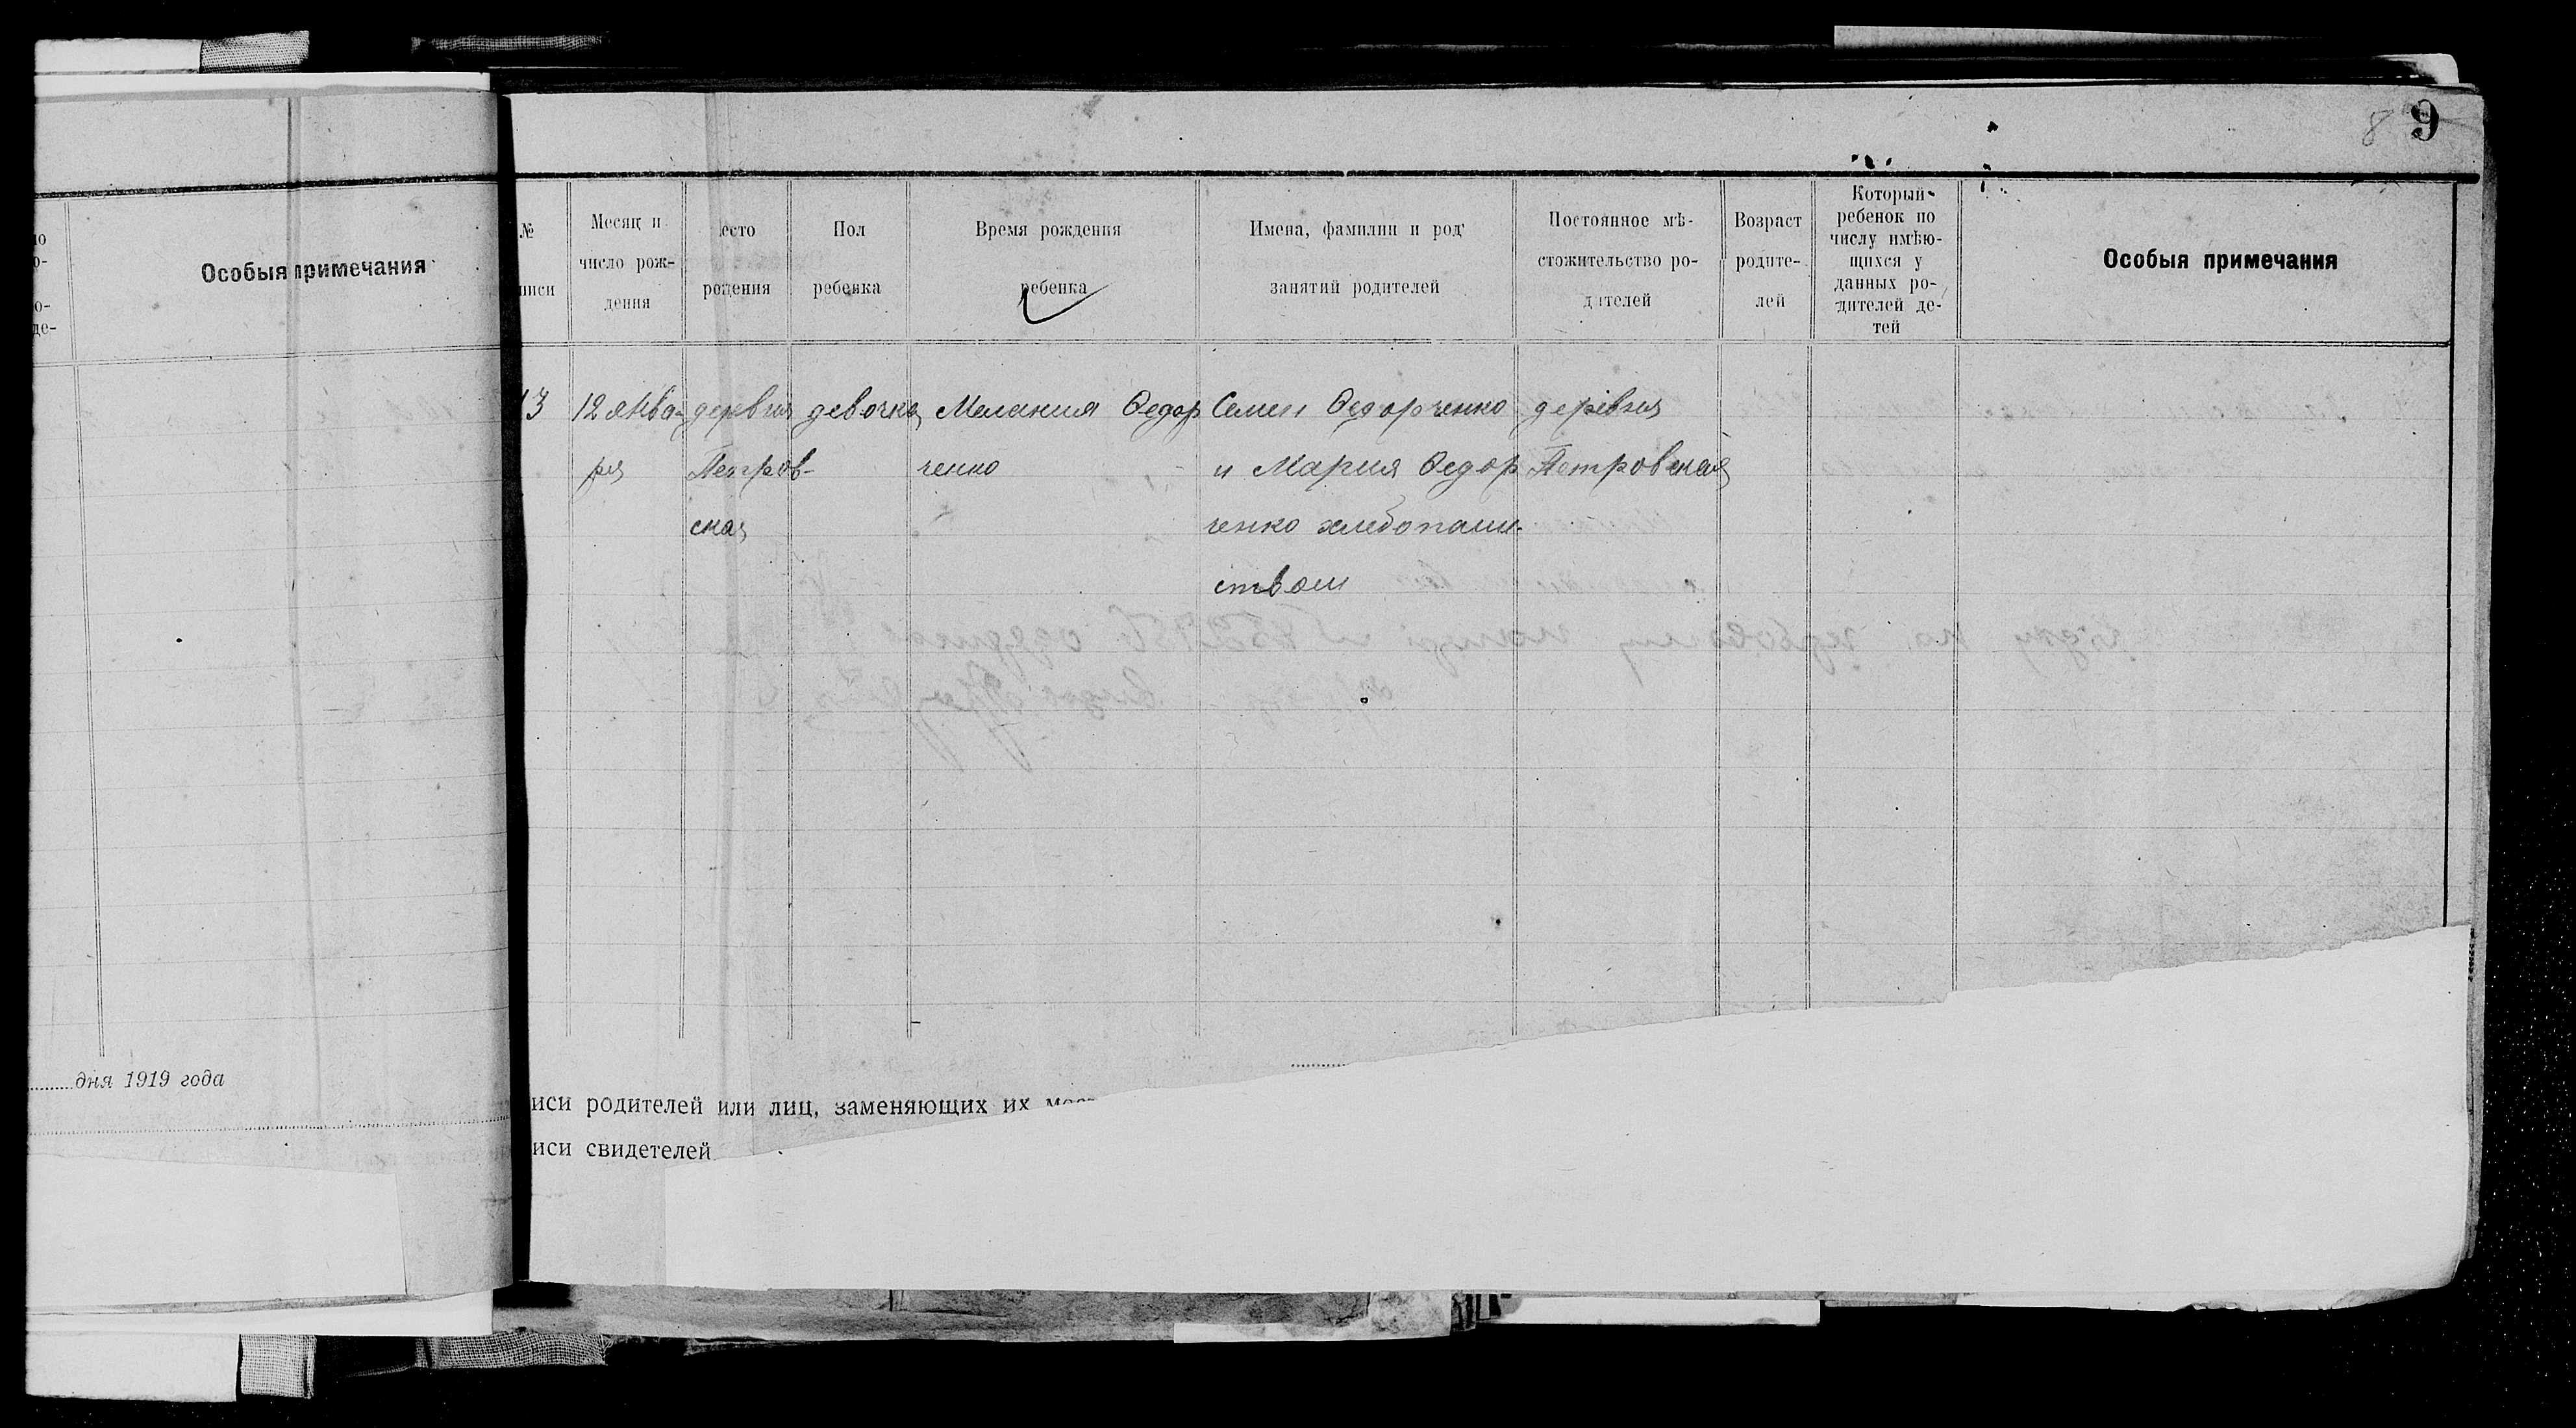 8 9
Особыя примечания
дня 1919 года
№
Месяц и
число рож-
дения
есто
рождения
Пол
ребенка
Время рождения
ребенка
Имена, фамилии и род
занятий родителей
Постоянное мѣ-
стожительство ро-
дителей
Возраст
родите-
лей
Который
ребенок по
числу имѣю-
щихся у
данных ро-
дителей де-
тей
Особыя примечания
13
12 янва-
ря
деревня
Петров-
ская
девочка
Мелания Ѳедор
ченко
Семен Ѳедорченко
и Мария Ѳедор
ченко хлебопаш-
ством
деревня
Петровская
иси родителей или лиц, заменяющих их
иси свидетелей